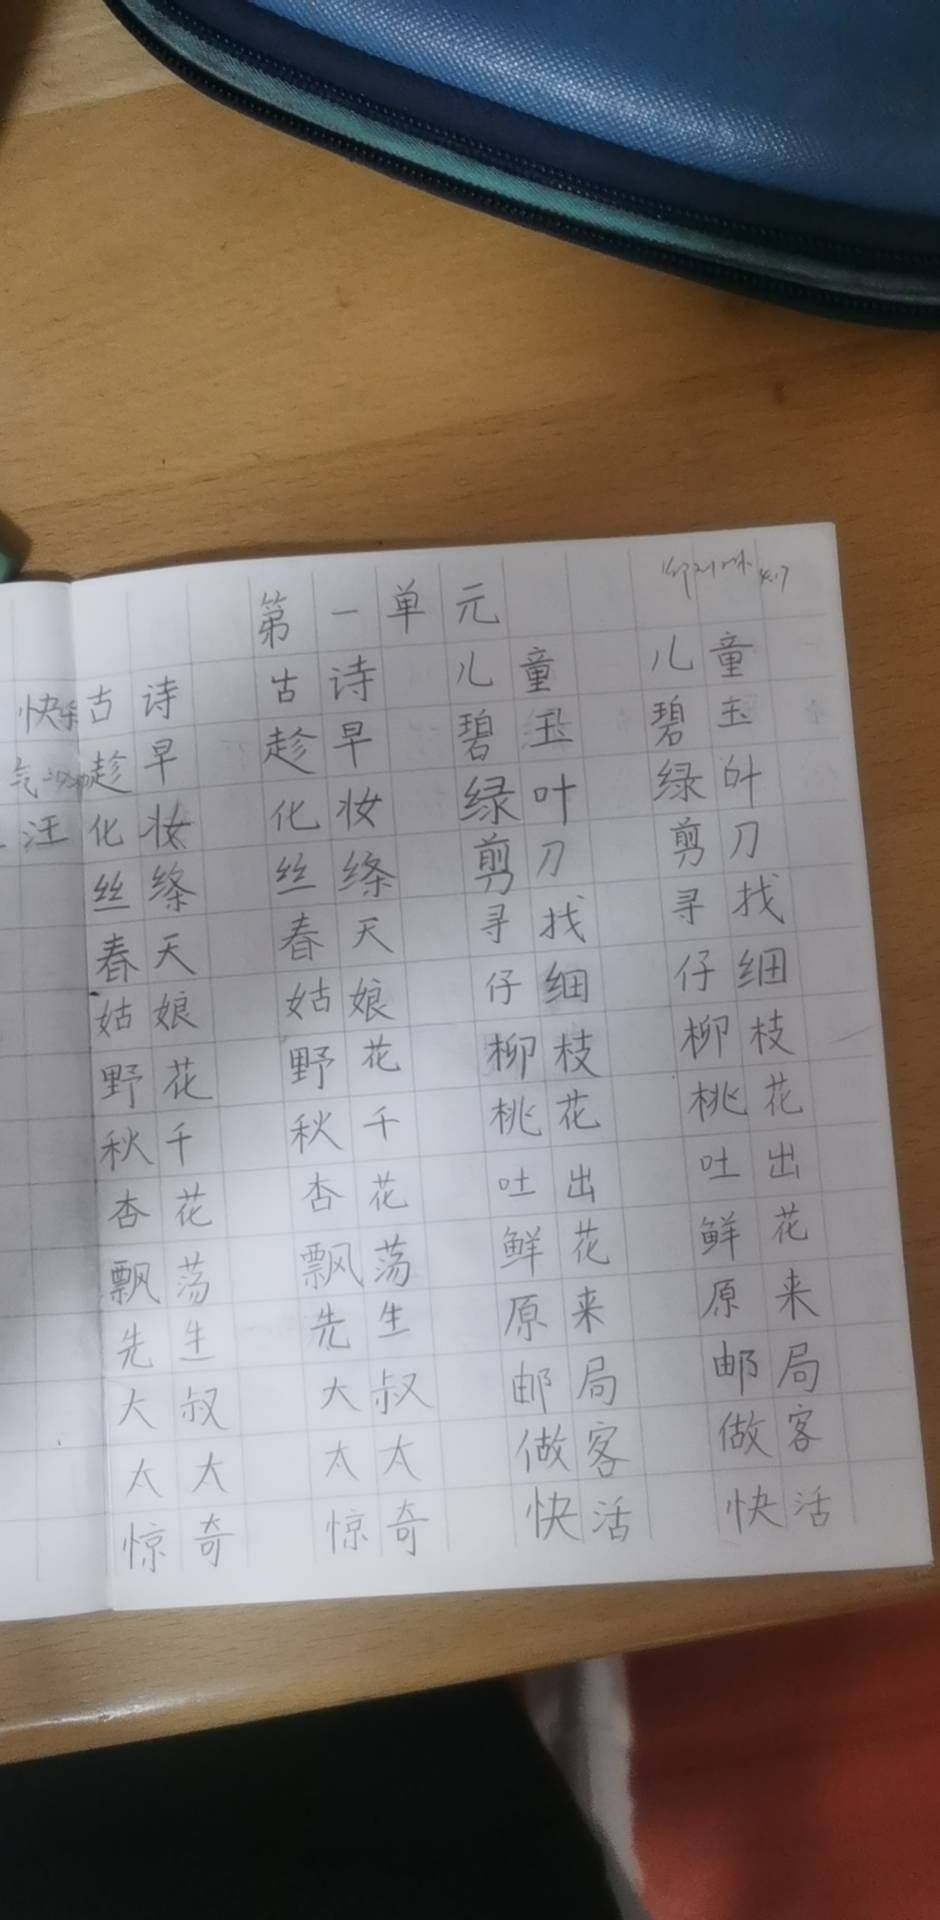 第一单元
4.17
快乐 古诗 古诗 儿童 儿童
趁早 趁早 碧玉 碧玉
汪 化妆 化妆 绿叶 绿叶
丝绦 丝绦 剪刀 剪刀
春天 春天 寻找 寻找
姑娘 姑娘 仔细 仔细
野花 野花 柳枝 柳枝
秋千 秋千 桃花 桃花
杏花 杏花 吐出 吐出
飘荡 飘荡 鲜花 鲜花
先生 先生 原来 原来
大叔 大叔 邮局 邮局
太太 太太 做客 做客
惊奇 惊奇 快活 快活